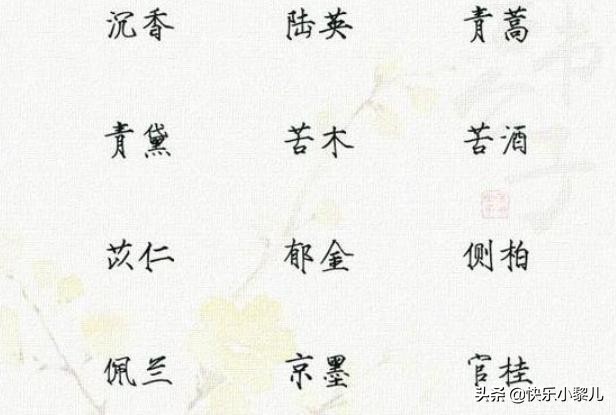 沉香 陆英 青蒿
青黛 苦木 苦酒
苡仁 郁金 侧柏
佩兰 京墨 官桂
头条 @快乐小黎儿